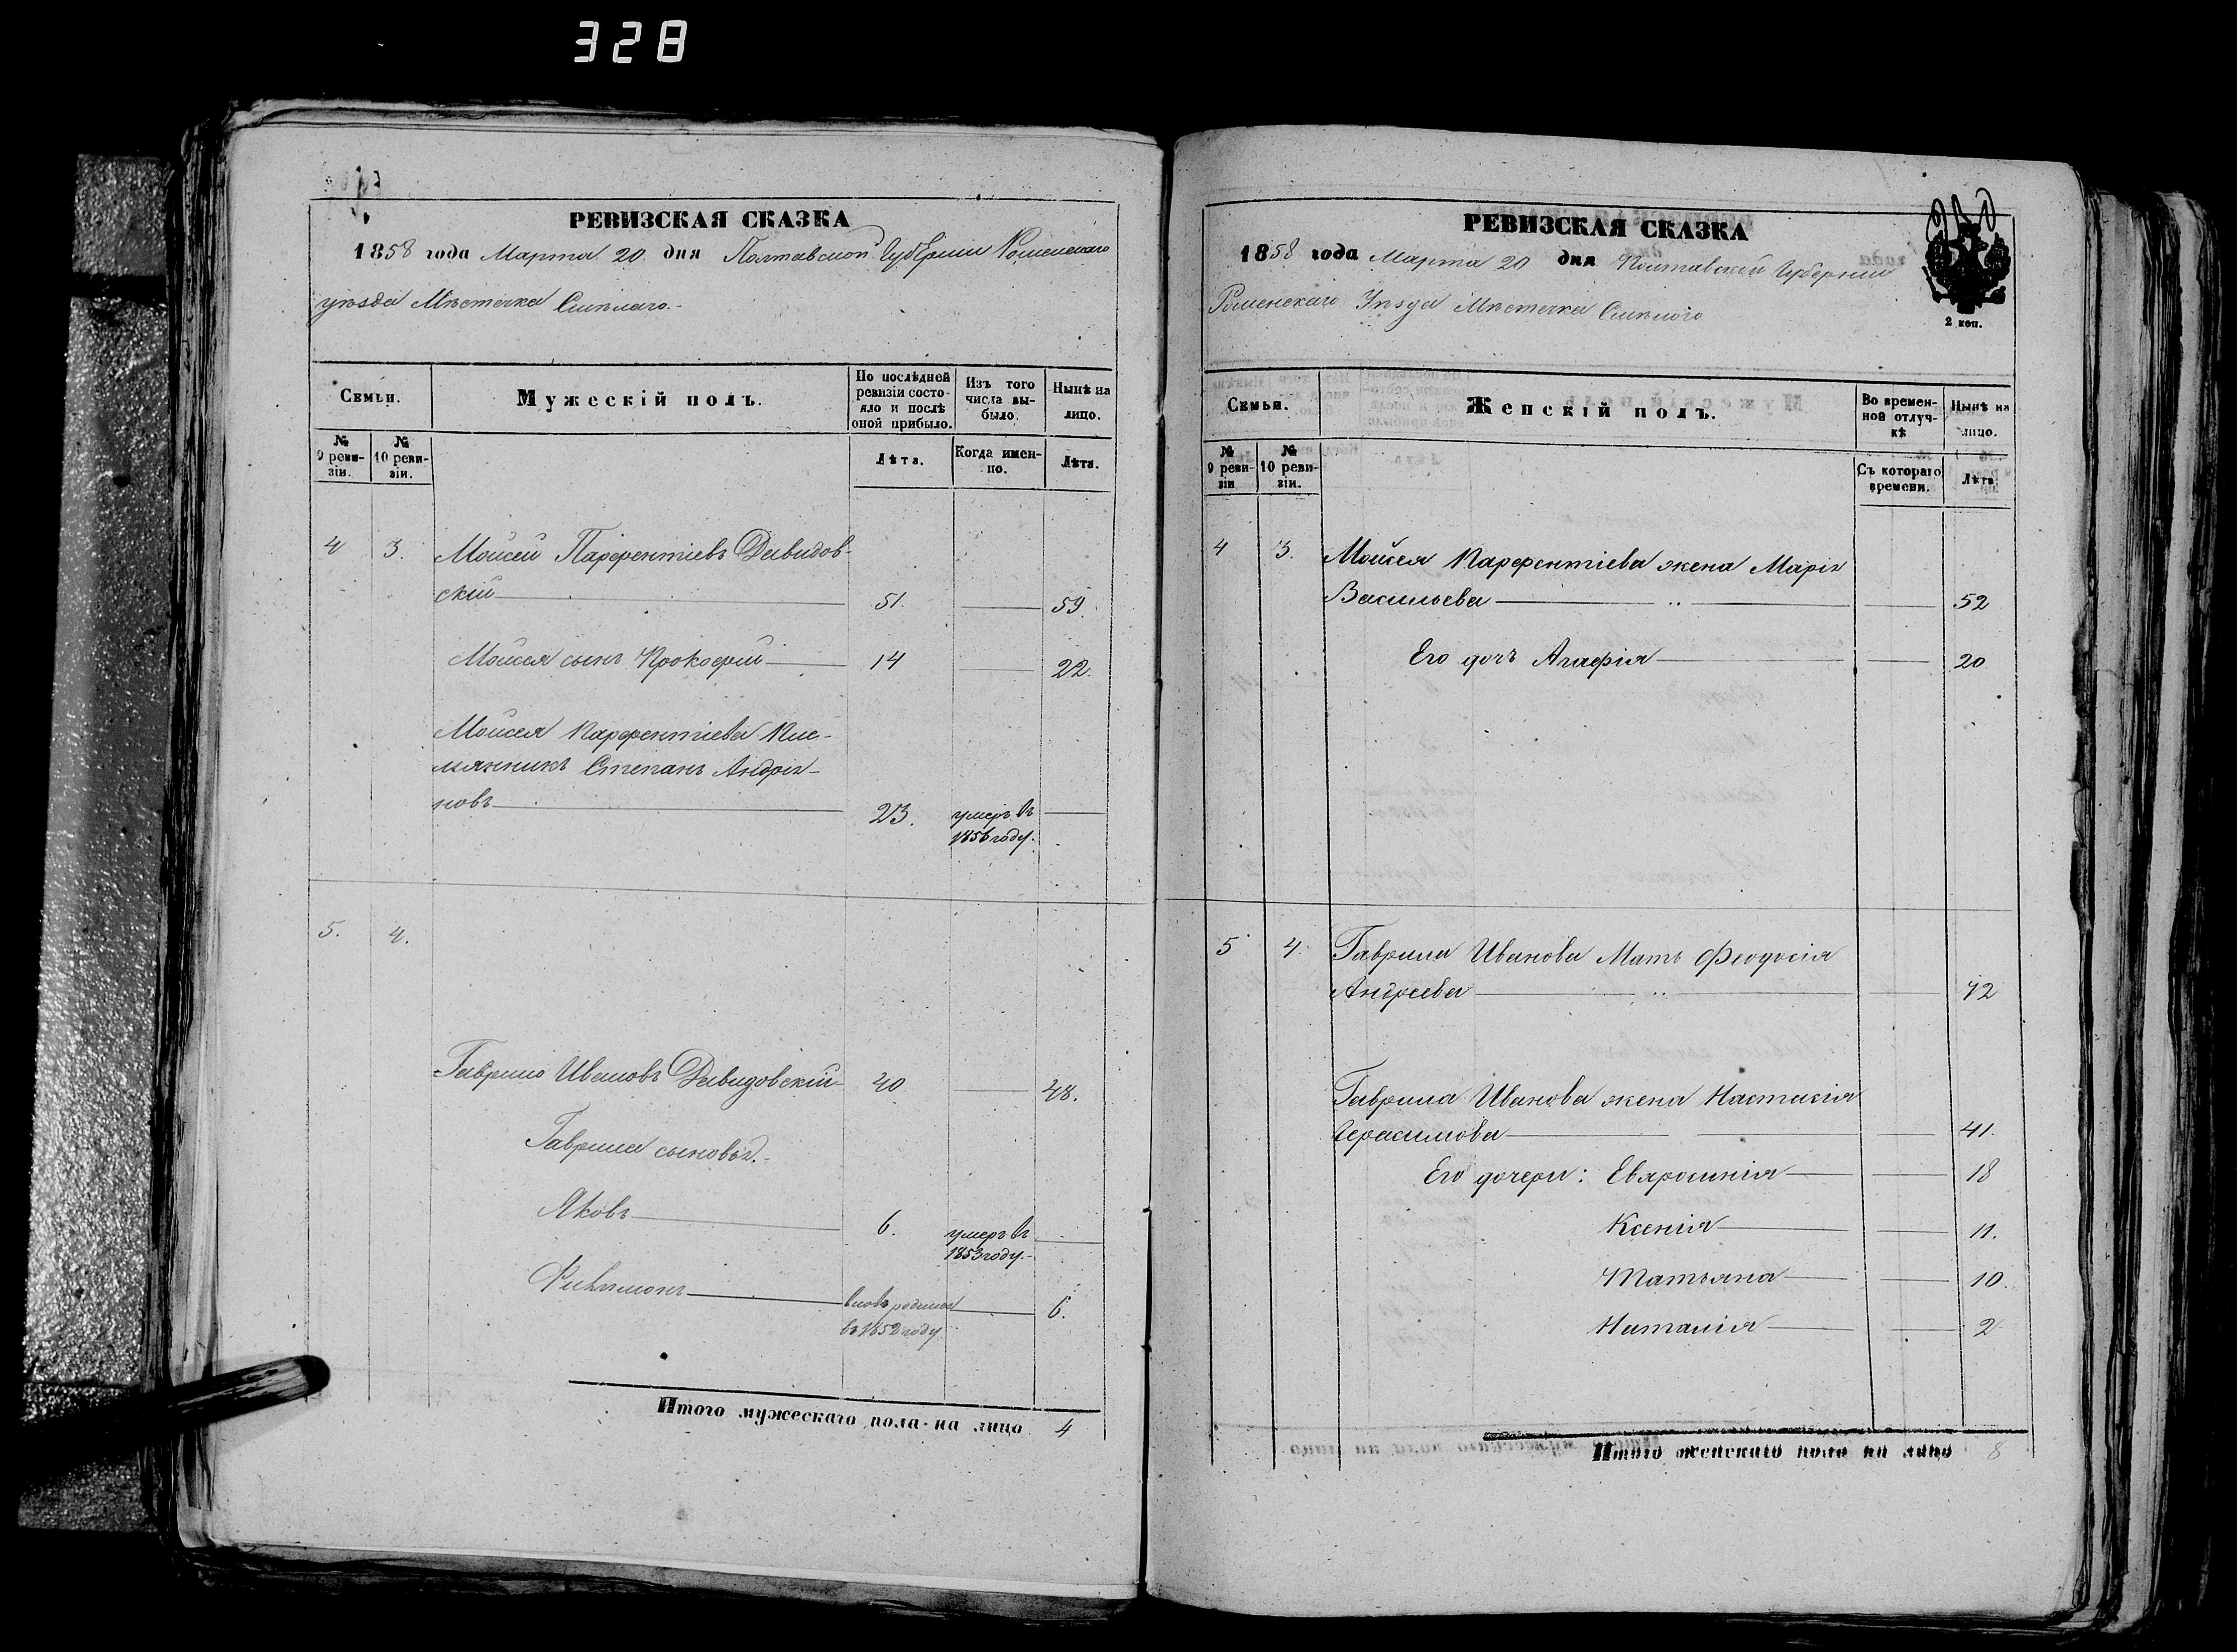 328
РЕВИЗСКАЯ СКАЗКА
1858 года Марта 20 дня Полтавской Губерніи Роменскаго
уѣзда Мѣстечка Смѣлаго.
Семьи.
Мужескій полъ.
По послѣдней ревизіи состояло и послѣ оной прибыло.
Изъ того числа выбыло.
Нынѣ на лицо.
№ 9 ревизіи.
№ 10 ревизіи.
Лѣта.
Когда именно.
Лѣта.
4 3. Мойсей Парфентіевъ Давидов-
скій 51. 59.
Мойсея сынъ Прокофій 14 22.
Мойсея Парфентіева Пле-
мянникъ Степанъ Андрія-
новъ 23. умеръ въ
1856 году.
5. 4.
Гаврило Ивановъ Давидовскій 40 48.
Гаврила сыновья.
Яковъ 6. умеръ въ
1853 году.
Филимонъ вновь родился 6.
въ 1852 году.
Итого мужескаго пола на лицо 4
РЕВИЗСКАЯ СКАЗКА
1858 года Марта 20 дня Полтавской Губерніи
Роменскаго Уѣзда Мѣстечка Смѣлого
2 коп.
Семьи.
Женскій полъ.
Во временной отлучкѣ
Нынѣ на лицо.
№ 9 ревизіи
№ 10 ревизіи.
Съ котораго времени.
Лѣта
4 3. Мойсея Парфентіева жена Марія
Васильева 52
Его дочь Агафія 20
5 4. Гаврила Иванова Мать Феодосія
Андреева 72
Гаврила Иванова жена Настасія
Герасимова 41.
Его дочери: Евфросинія 18
Ксенія 11.
Татьяна 10.
Наталія 2
Итого женскаго пола на лицо 8